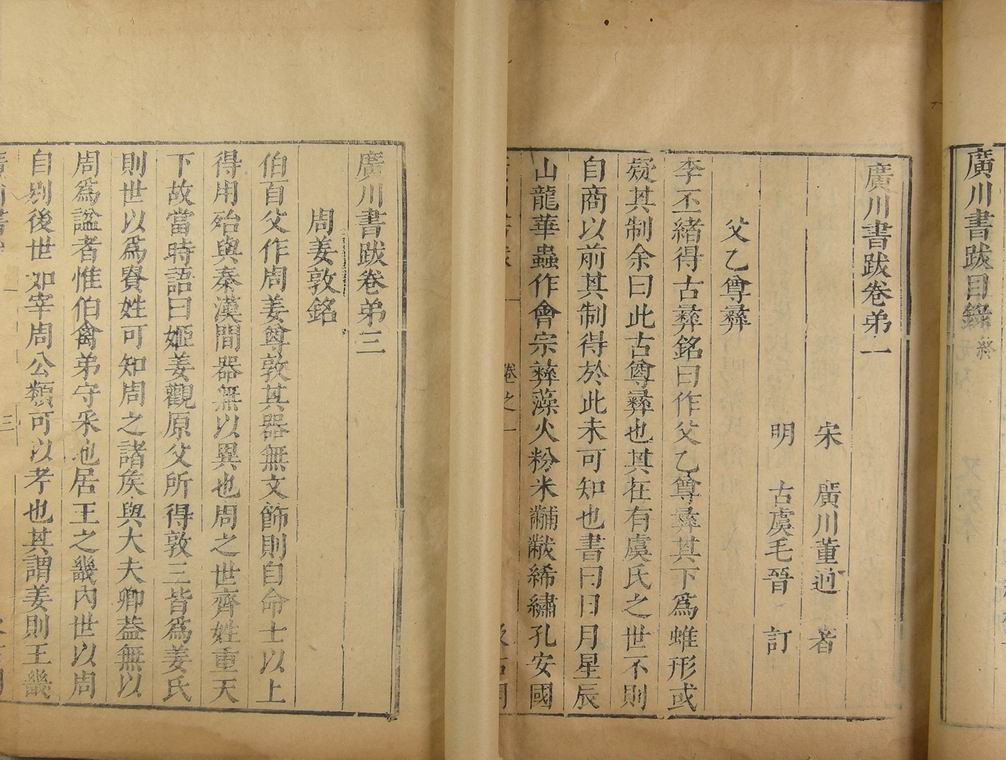 廣川書跋目錄終
廣川書跋卷弟一
宋　廣川董逌　著
明　古虞毛晉　訂
父乙尊彝
李丕緒得古彝銘曰作父乙尊彝其下爲蜼形或
疑其制余曰此古尊彝也其在有虞氏之世不則
自商以前其制得於此未可知也書曰日月星辰
山龍華蟲作會宗彝藻火粉米黼黻絺繡孔安國
卷之一
廣川書跋卷弟三
周姜敦銘
伯百父作周姜尊敦其器無文飾則自命士以上
得用殆與秦漢間器無以異也周之世齊姓重天
下故當時語曰姬姜觀原父所得敦三皆爲姜氏
則世以爲賽姓可知周之諸矦與大夫卿葢無以
周爲謚者惟伯禽弟守采也居王之畿內世以周
自别後世如宰周公類可以考也其謂姜則王畿
三